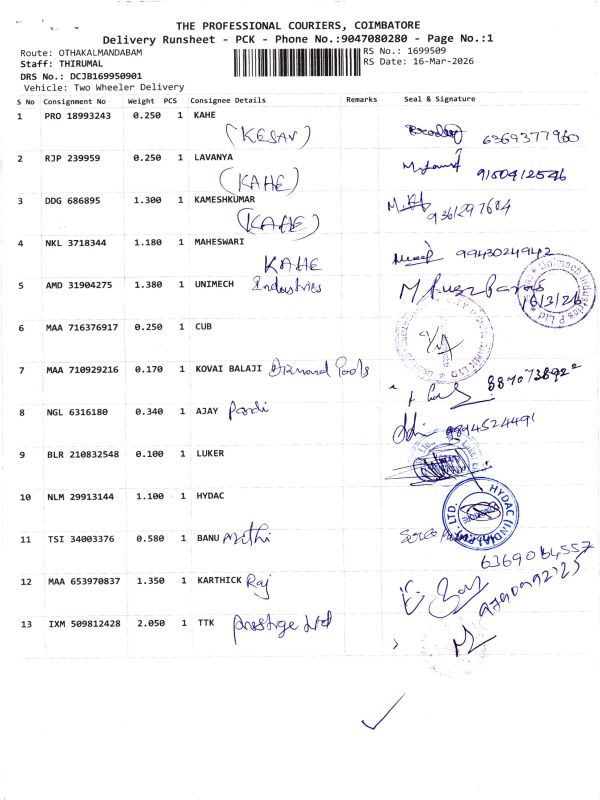 THE PROFESSIONAL COURIERS, COIMBATORE
Delivery Runsheet - PCK - Phone No.:9047080280 - Page No.:1
Route: OTHAKALMANDABAM
RS No.: 1699509
Staff: THIRUMAL
RS Date: 16-Mar-2026
DRS No.: DCJB169950901
Vehicle: Two Wheeler Delivery
S No Consignment No Weight PCS Consignee Details Remarks Seal & Signature
1 PRO 18993243 0.250 1 KAHE
(KESAV) 6369377960
2 RJP 239959 0.250 1 LAVANYA
(KAHE) 9150412546
3 DDG 686895 1.300 1 KAMESHKUMAR
(KAHE) 9361297684
4 NKL 3718344 1.180 1 MAHESWARI
KAHE 9943024942
5 AMD 31904275 1.380 1 UNIMECH Industries
16/3/26
Unimech Industries P Ltd
6 MAA 716376917 0.250 1 CUB
7 MAA 710929216 0.170 1 KOVAI BALAJI Diamond Tools
8870738922
8 NGL 6316180 0.340 1 AJAY Pandi
9894524491
9 BLR 210832548 0.100 1 LUKER
10 NLM 29913144 1.100 1 HYDAC
HYDAC (INDIA) PVT. LTD.
11 TSI 34003376 0.580 1 BANU
6369064557
12 MAA 653970837 1.350 1 KARTHICK Raj
13 IXM 509812428 2.050 1 TTK Prestige Ltd